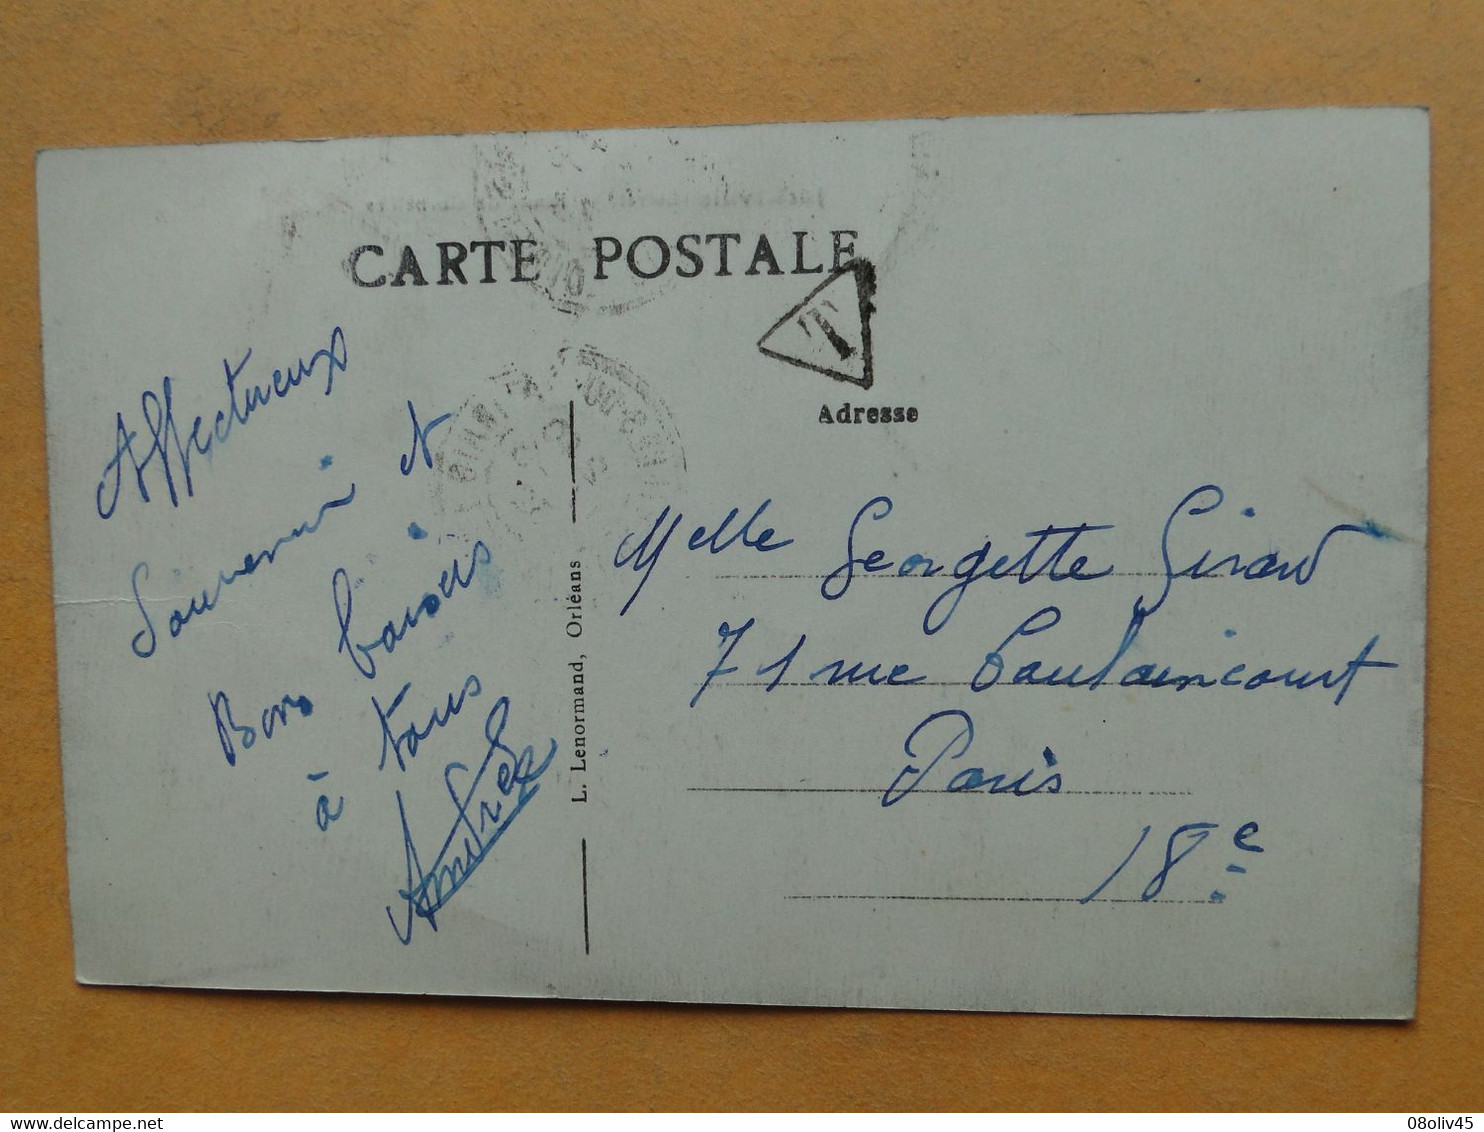 CARTE POSTALE
T
Adresse
Affectueux
Souvenir et
Bons baisers
à tous
Andrée
L. Lenormand, Orléans
Melle Georgette Girard
71 rue Caulaincourt
Paris
18e
08oliv45